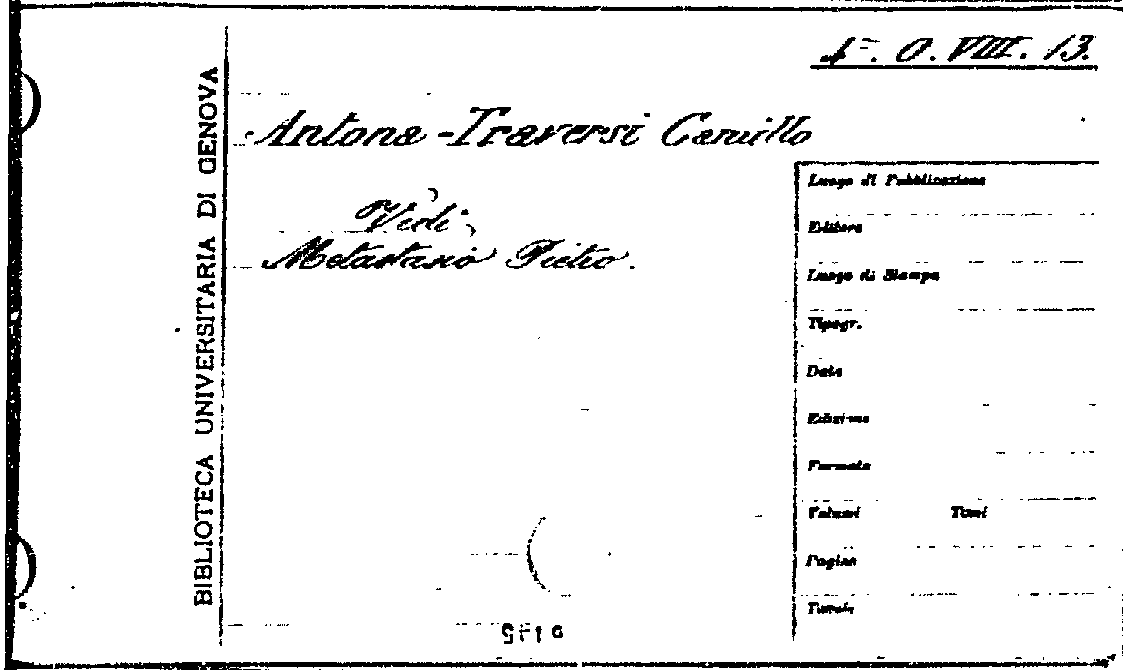 4ª. O. VIII. 13.
BIBLIOTECA UNIVERSITARIA DI GENOVA
Antona-Traversi Camillo
Vedi
Metastasio Pietro.
Luogo di Pubblicazione
Editore
Luogo di Stampa
Tipogr.
Data
Edizione
Formato
Volumi Tomi
Pagine
Tavole